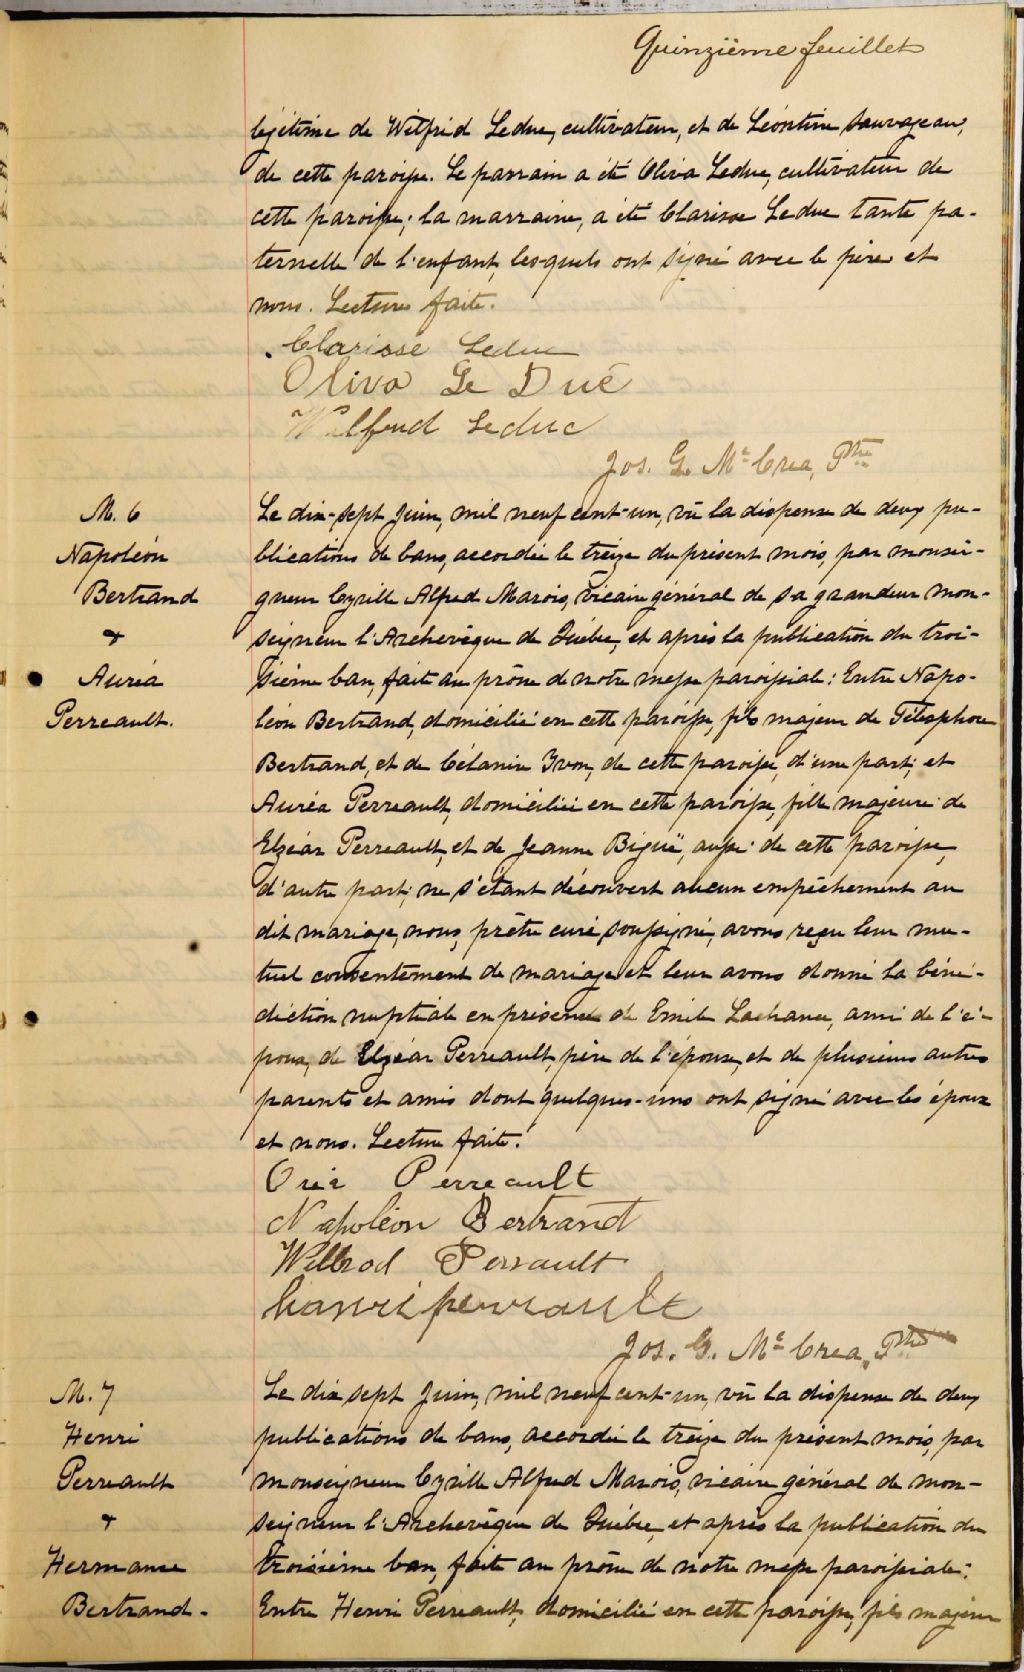 Quinzième feuillet
légitime de Wilfrid Leduc, cultivateur, et de Léontine Sauvageau,
de cette paroisse. Le parrain a été Oliva Leduc, cultivateur de
cette paroisse; la marraine, a été Clarisse Leduc tante pa-
ternelle de l'enfant, lesquels ont signé avec le père et
nous. Lecture faite.
Clarisse Leduc
Oliva Le Duc
Wilfrid Leduc
Jos. G. McCrea, Ptre
M. 6
Napoléon
Bertrand
&
Auréa
Perreault.
Le dix-sept Juin, mil neuf cent-un, vû la dispense de deux pu-
blications de bans, accordée le treize du présent mois, par monsei-
gneur Cyrille Alfred Marois, vicaire général de sa grandeur mon-
seigneur l'Archevêque de Québec, et après la publication du troi-
sième ban, faite au prône de notre messe paroissiale: Entre Napo-
léon Bertrand, domicilié en cette paroisse, fils majeur de Télesphore
Bertrand, et de Célanire Yvon, de cette paroisse, d'une part; et
Auréa Perreault, domiciliée en cette paroisse, fille majeure de
Elzéar Perreault, et de Jeanne Bigué, aussi de cette paroisse,
d'autre part; ne s'étant découvert aucun empêchement au
dit mariage, nous, prêtre curé soussigné, avons reçu leur mu-
tuel consentement de mariage et leur avons donné la béné-
diction nuptiale en présence de Emile Lachance, ami de l'é-
poux, de Elzéar Perreault, père de l'épouse, et de plusieurs autres
parents et amis dont quelques-uns ont signé avec les époux
et nous. Lecture faite.
Perreault
Napoléon Bertrand
Willrod Perrault
hanri perrault
Jos. G. McCrea, Ptre
M. 7
Henri
Perreault
&
Hermance
Bertrand.
Le dix sept Juin, mil neuf cent-un, vû la dispense de deux
publications de bans, accordée le treize du présent mois, par
monseigneur Cyrille Alfred Marois, vicaire général de mon-
seigneur l'Archevêque de Québec, et après la publication du
troisième ban, faite au prône de notre messe paroissiale:
Entre Henri Perreault, domicilié en cette paroisse, fils majeur